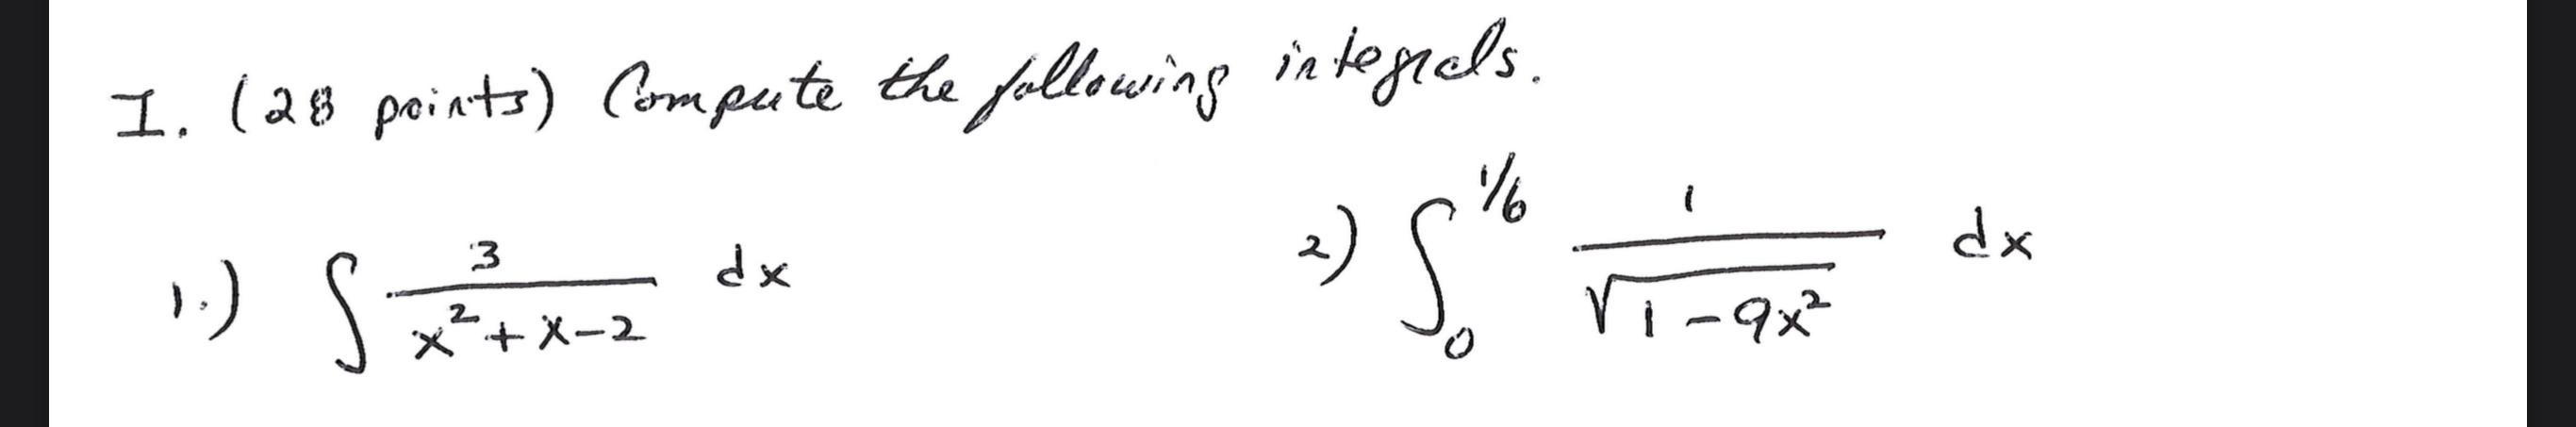 I. (28 points) Compute the following integrals.
1.) ∫ 3/(x²+x-2) dx 2) ∫₀^(1/6) 1/√(1-9x²) dx